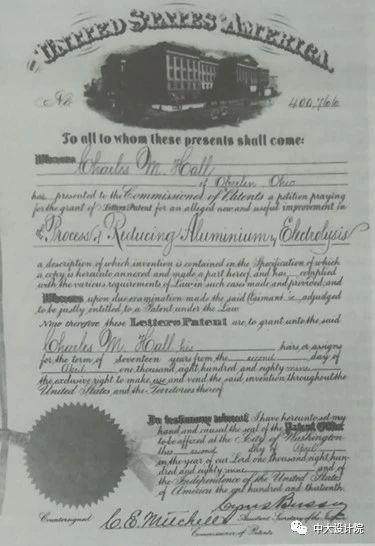 UNITED STATES OF AMERICA.
No 400,766
To all to whom these presents shall come:
Whereas Charles M. Hall
of Oberlin Ohio
has presented to the Commissioner of Patents a petition praying
for the grant of Letters Patent for an alleged new and useful improvement in
Process of Reducing Aluminium by Electrolysis
a description of which invention is contained in the Specification of which
a copy is hereunto annexed and made a part hereof, and has complied
with the various requirements of Law in such cases made and provided, and
Whereas upon due examination made the said Claimant is adjudged
to be justly entitled to a Patent under the Law
Now therefore these Letters Patent are to grant unto the said
Charles M. Hall his heirs or assigns
for the term of seventeen years from the second day of
April one thousand eight hundred and eighty nine
the exclusive right to make, use and vend the said invention throughout the
United States and the Territories thereof
In testimony whereof I have hereunto set my
hand and caused the seal of the Patent Office
to be affixed at the City of Washington
this second day of April
in the year of our Lord one thousand eight hun
dred and eighty nine and of
the Independence of the United States
of America the one hundred and thirteenth.
Cyrus Bussey
Countersigned C.E. Mitchell Assistant Secretary of the Interior
Commissioner of Patents
中大设计院